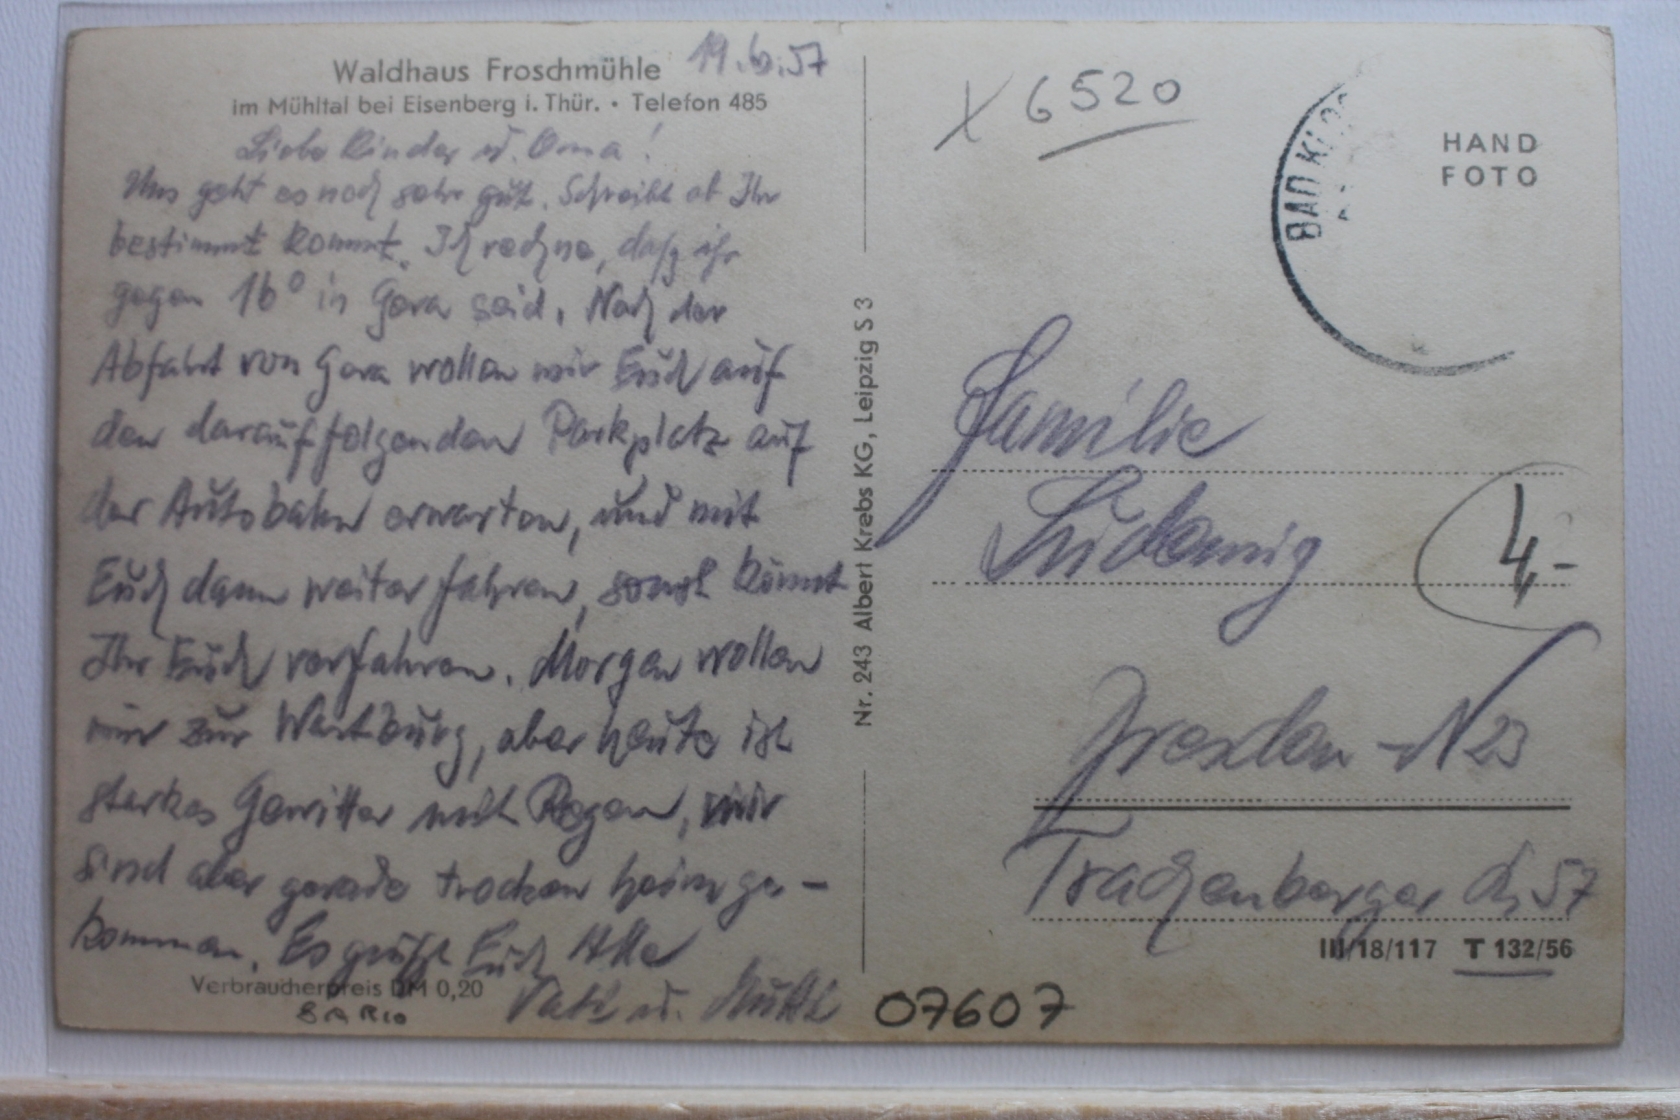 Waldhaus Froschmühle 19.6.57
im Mühltal bei Eisenberg i. Thür. • Telefon 485
Liebe Kinder u. Oma!
Uns geht es noch sehr gut. Schreibt ob Ihr
bestimmt kommt. Ich rechne, daß ihr
gegen 16⁰ in Gera seid. Nach der
Abfahrt von Gera wollen wir Euch auf
den darauffolgenden Parkplatz auf
der Autobahn erwarten, und mit
Euch dann weiter fahren, sonst könnt
Ihr Euch verfahren. Morgen wollen
wir zur Wartburg, aber heute ist
starkes Gewitter mit Regen, wir
sind aber gerade trocken heimge-
kommen. Es grüßt Euch Alle
Vati u. Mutti
Verbraucherpreis DM 0,20
Nr. 243 Albert Krebs KG, Leipzig S 3
X 6520
BAD KLO
HAND
FOTO
Familie
Ludewig
4,-
Dresden-N 23
Trachenberger Str. 57
III/18/117 T 132/56
07607